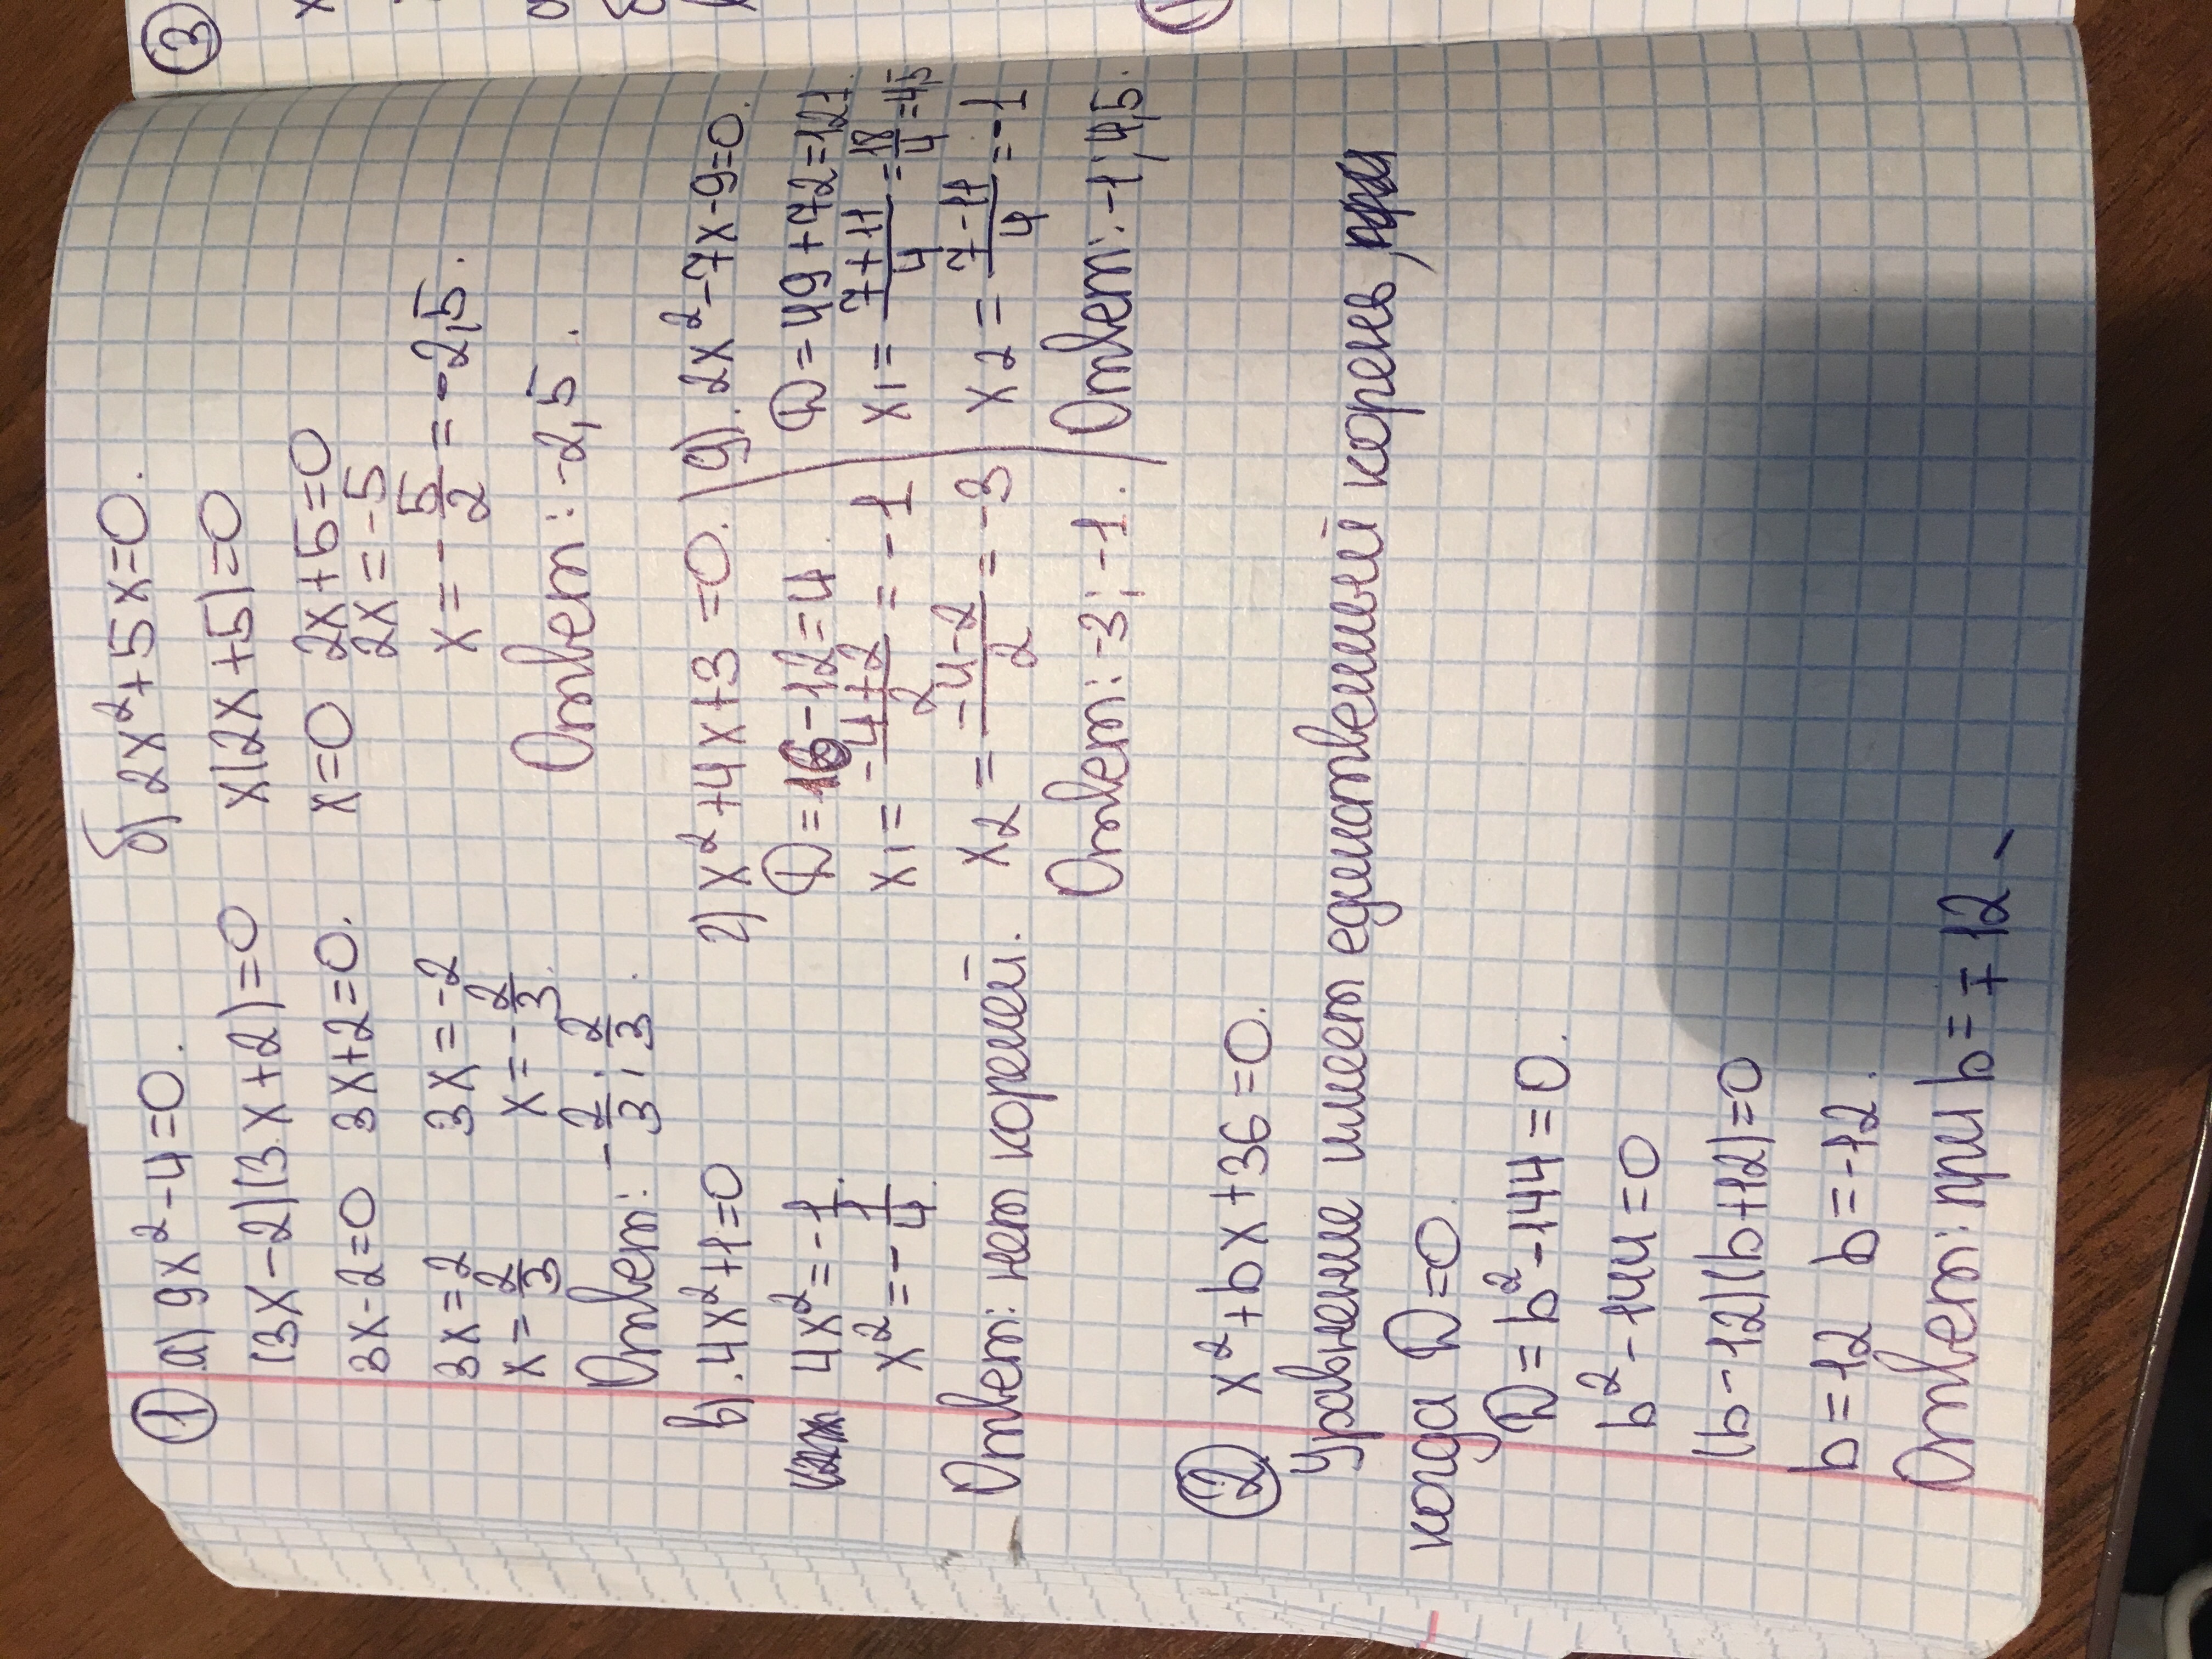 ① а) 9x²-4=0.
(3x-2)(3x+2)=0
3x-2=0 3x+2=0.
3x=2 3x=-2
x=2/3 x=-2/3.
Ответ: -2/3; 2/3.
б) 2x²+5x=0.
x(2x+5)=0
x=0 2x+5=0
2x=-5
x=-5/2=-2,5.
Ответ: -2,5.
в). 4x²+1=0
4x²=-1.
x²=-1/4.
Ответ: нет корней.
г) x²+4x+3=0.
D=16-12=4
x₁=(-4+2)/2=-1
x₂=(-4-2)/2=-3
Ответ: -3; -1.
д). 2x²-7x-9=0.
D=49+72=121.
x₁=(7+11)/4=18/4=4,5
x₂=(7-11)/4=-1
Ответ: -1; 4,5.
② x²+bx+36=0.
Уравнение имеет единственный корень,
когда D=0.
D=b²-144=0.
b²-144=0
(b-12)(b+12)=0
b=12 b=-12.
Ответ: при b=∓12
③